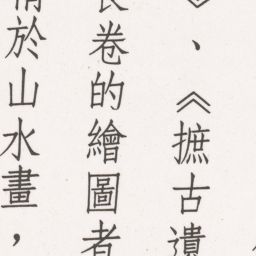 》、《摭古遺
長卷的繪圖者
情於山水畫，